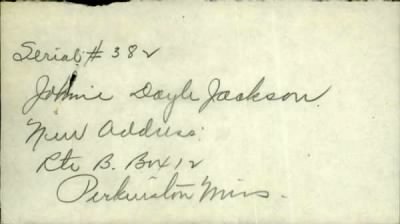 Serial # 382
Johnie Doyle Jackson.
New Address:
Rte B. Box 12
Perkinston Miss.